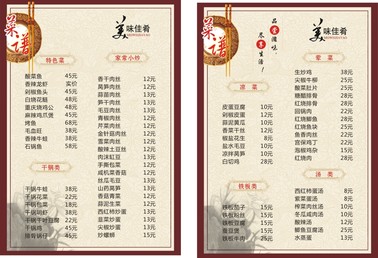 菜谱
美味佳肴
特色菜
酸菜鱼 45元
香辣龙虾 实价
剁椒鱼头 45元
白烧花鲢 48元
重庆烧鸡公 48元
麻辣鸡爪煲 45元
烤鱼 68元
毛血旺 38元
香辣牛蛙 58元
石锅鱼 58元
干锅类
干锅牛蛙
干锅花菜
干锅排骨
干锅肥肠
干锅千叶豆腐 22元
家常小炒
香干肉丝 12元
莴笋肉丝 12元
蒜苗肉丝 12元
茭白肉丝 12元
毛豆肉丝 12元
青椒肉丝 12元
芹菜肉丝 12元
金针菇肉丝 12元
雪菜肉丝 12元
酸辣土豆丝 12元
肉沫豇豆 12元
手撕包菜 12元
咸肉菜苔 12元
丝瓜毛豆 12元
山药莴笋 12元
香菇青菜 12元
蒜泥生菜 12元
西红柿炒蛋 12元
韭菜炒蛋 12元
尖椒炒蛋 12元
炒螺蛳 15元
菜谱
品尝滋味，
尽享生活！
美味佳肴
凉菜
皮蛋豆腐 10元
剁椒皮蛋 12元
蒜泥黄瓜 10元
香菜干丝 12元
椒盐花生 8元
盐水毛豆 10元
凉拌莴笋 10元
白切鸡 28元
铁板类
铁板茄子
铁板粉丝
铁板豆腐
铁板牛肉
荤菜
生炒鸡 38元
尖椒牛柳 38元
酸菜肚片 28元
糖醋排骨 28元
红烧排骨 28元
红烧鳊鱼 28元
红烧鲫鱼 28元
红烧鱼块 28元
鱼香肉丝 22元
宫保鸡丁 22元
椒盐鸡块 28元
红烧肉 28元
汤类
西红柿蛋汤 8元
紫菜蛋汤 8元
榨菜肉丝汤 10元
冬瓜咸肉汤 10元
酸辣汤 10元
鲫鱼豆腐汤 25元
水蒸蛋 10元